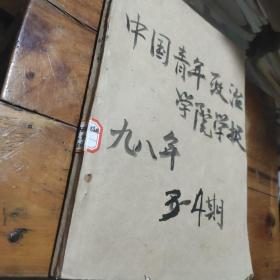 中国青年政治
学院学报
九八年
3-4期